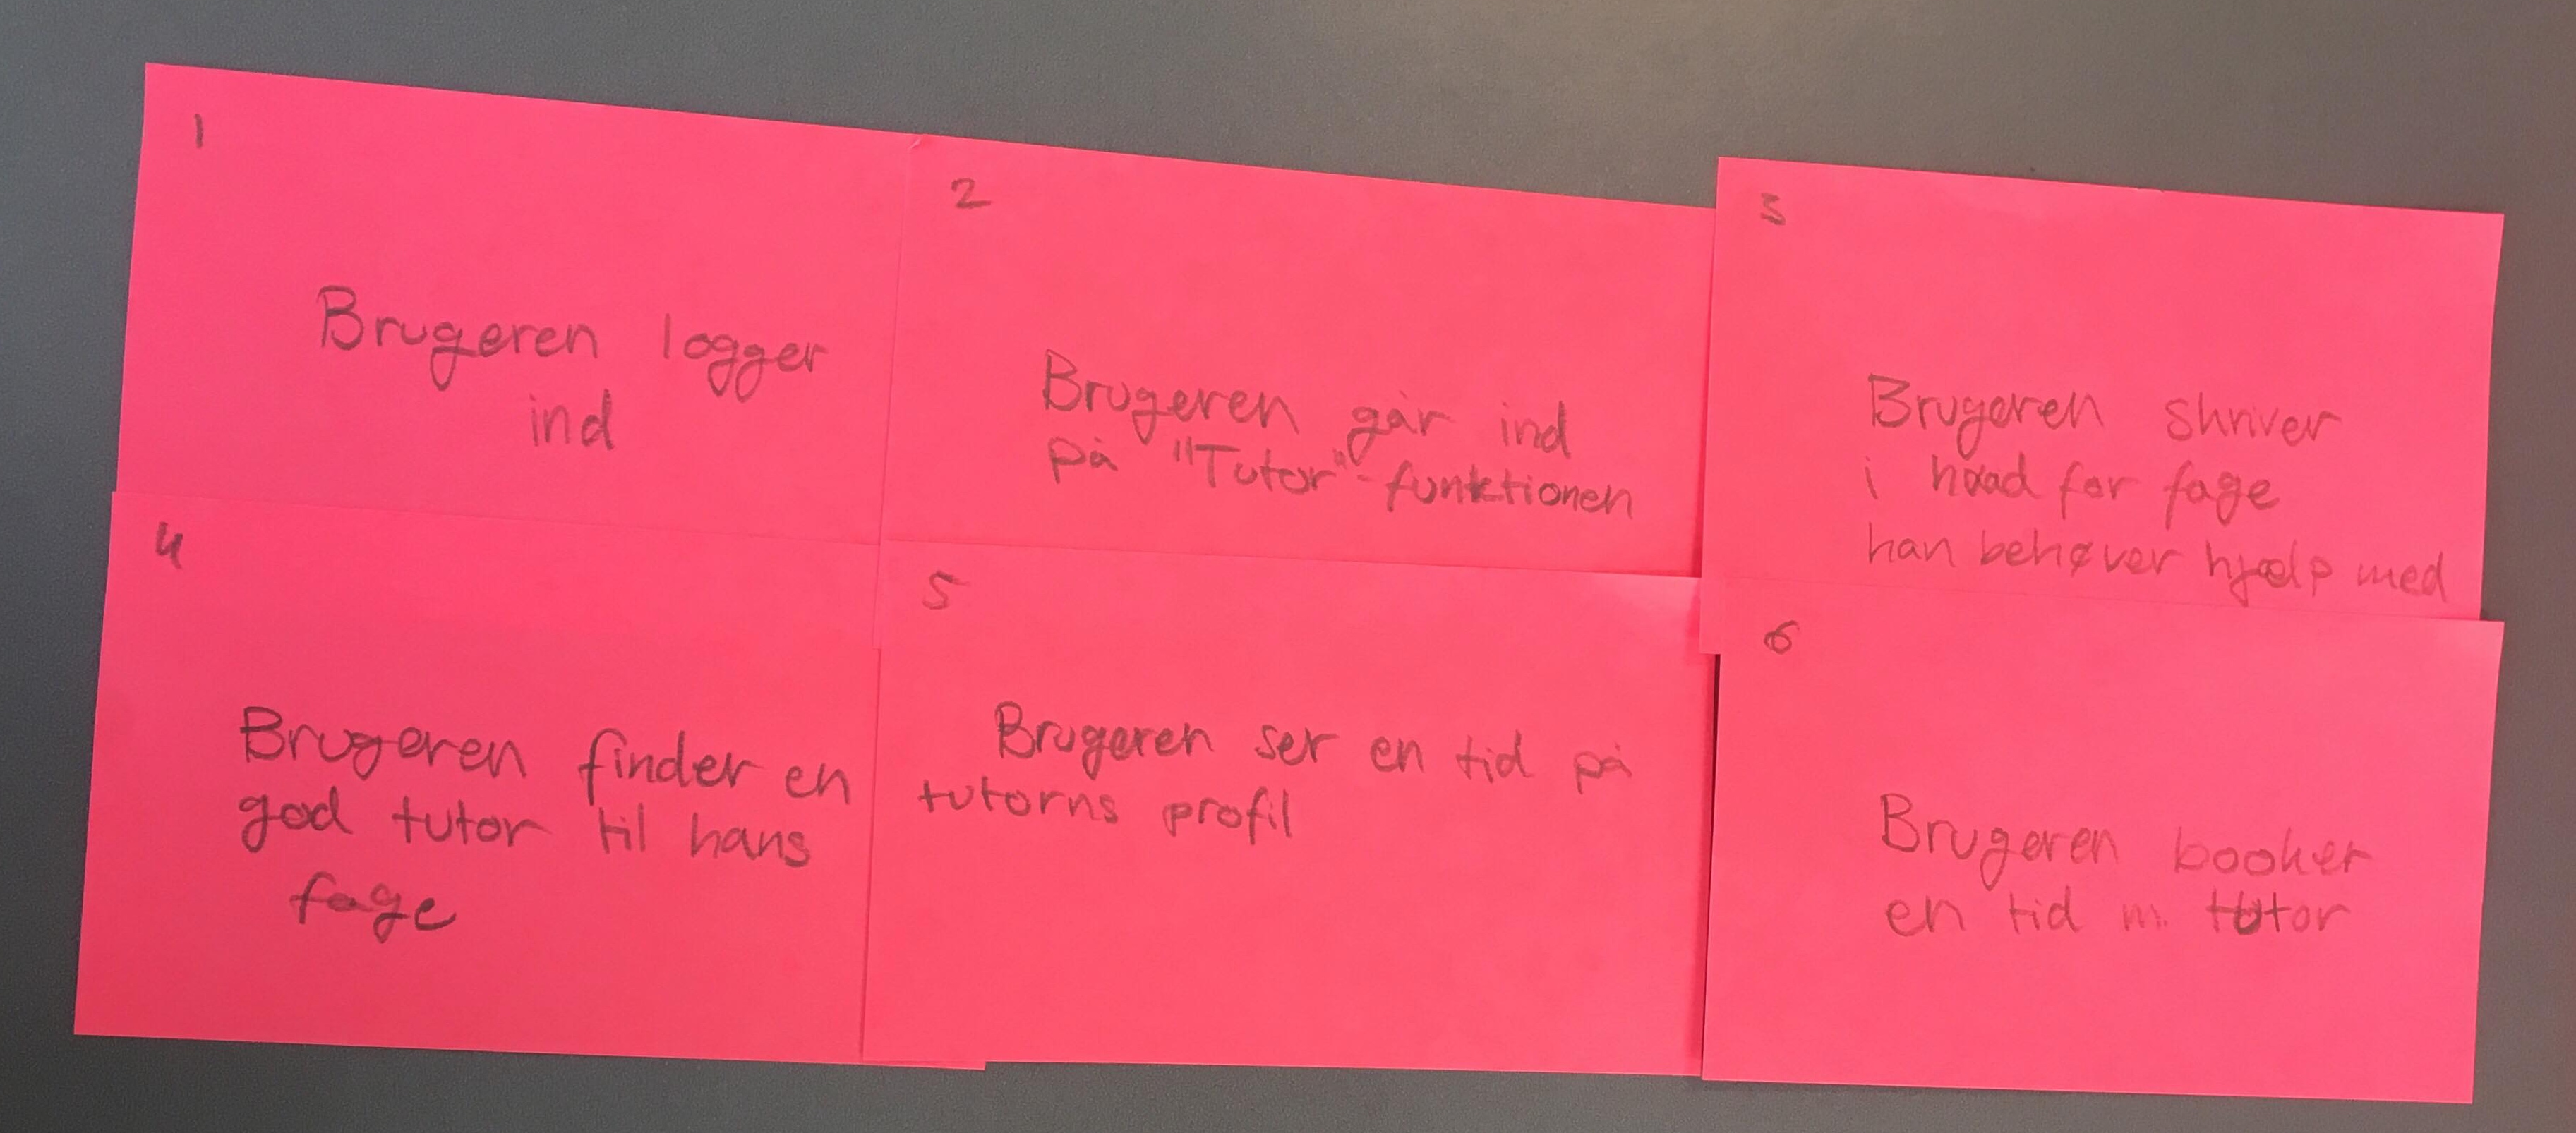 1
Brugeren logger
ind
2
Brugeren går ind
på "Tutor"-funktionen
3
Brugeren skriver
i hvad for fage
han behøver hjælp med
4
Brugeren finder en
god tutor til hans
fage
5
Brugeren ser en tid på
tutorns profil
6
Brugeren booker
en tid m. tutor